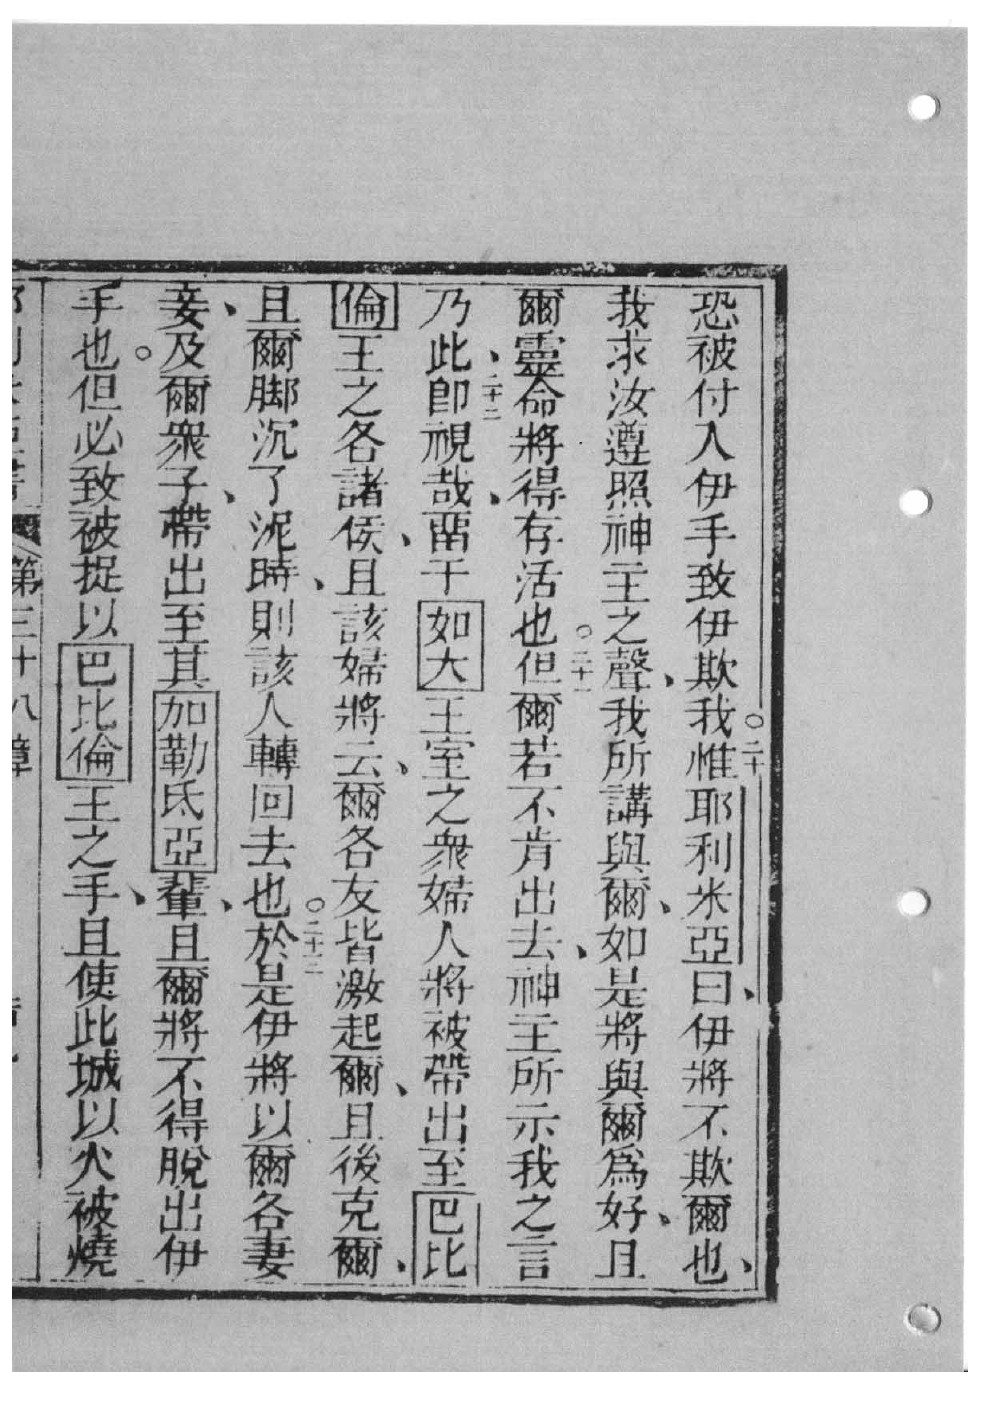 恐被付入伊手致伊欺我○二十惟耶利米亞曰、伊將不欺爾也、
我求汝遵照神主之聲、我所講與爾、如是將與爾爲好、且
爾靈命將得存活也○二十一但爾若不肯出去、神主所示我之言
乃此、二十二即視哉、畱于如大王室之衆婦人將被帶出至巴比
倫王之各諸侯、且該婦將云、爾各友皆激起爾、且後克爾、
且爾脚沉了泥時、則該人轉回去也○二十三於是伊將以爾各妻
妾、及爾衆子、帶出至其加勒氐亞輩、且爾將不得脫出伊
手也。但必致被捉以巴比倫王之手、且使此城以火被燒
第三十八章